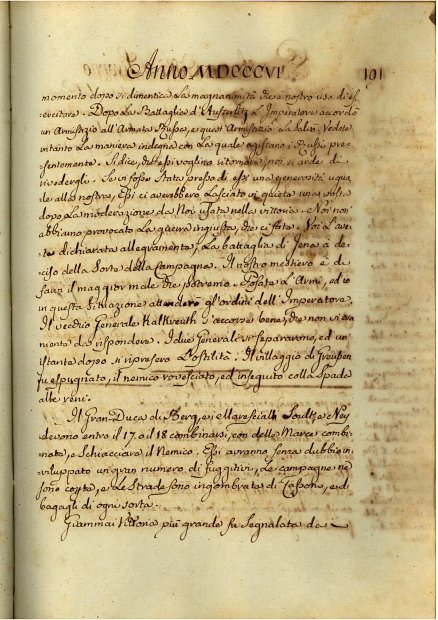 Anno MDCCCVI
191
momento dopo si dimentica la magnanimità che è nostro uso di es-
ercitare. Dopo la Battaglia d'Austerlitz L'Imperatore accordò
un Armistizio all'Armata Russa, e quest'Armistizio la salvò. Vedete
intanto la maniera indegna con la quale agiscano i Russi pre-
sentemente. Si dice, ch'essi voglino ritornare, noi si arde di
rivedergli. Se vi fosse stata presso di essi una generosità ugua-
le alla nostra, Essi ci averebbero lasciato in quiete una volta
dopo la moderazione da Noi usata nella vittoria. Noi non
abbiamo provocato la guerra ingiusta, che ci fate. Voi l'ave-
te dichiarata allegramente; La battaglia di Jena à de-
ciso della Sorte della Campagna. Il nostro mestiero è di
farvi il maggior male che potremo. Posate l'Armi, ed io
in questa situazione attenderò gl'ordini dell'Imperatore.
Il vecchio Generale Kalkreuth s'accorse bene, che non vi era
niente da rispondere. I due Generali si separarono, ed un
istante dopo si ripresero l'ostilità. Il villaggio di Greuben
fu espugnato, il nemico rovesciato, ed inseguito colla Spada
alle reni.
Il Gran-Duca di Berg, e i Marescialli Soult, e Ney
devono entro il 17. o il 18 combinarsi, con delle Marce combi-
nate, e Schiacciare il Nemico. Essi avranno senza dubbio in-
viluppato un gran numero di fuggitivi, Le campagne ne
sono coperte, e le Strade sono ingombrate di Cassoni, e di
bagagli di ogni sorta.
Giammai Vittoria più grande fu Segnalata da